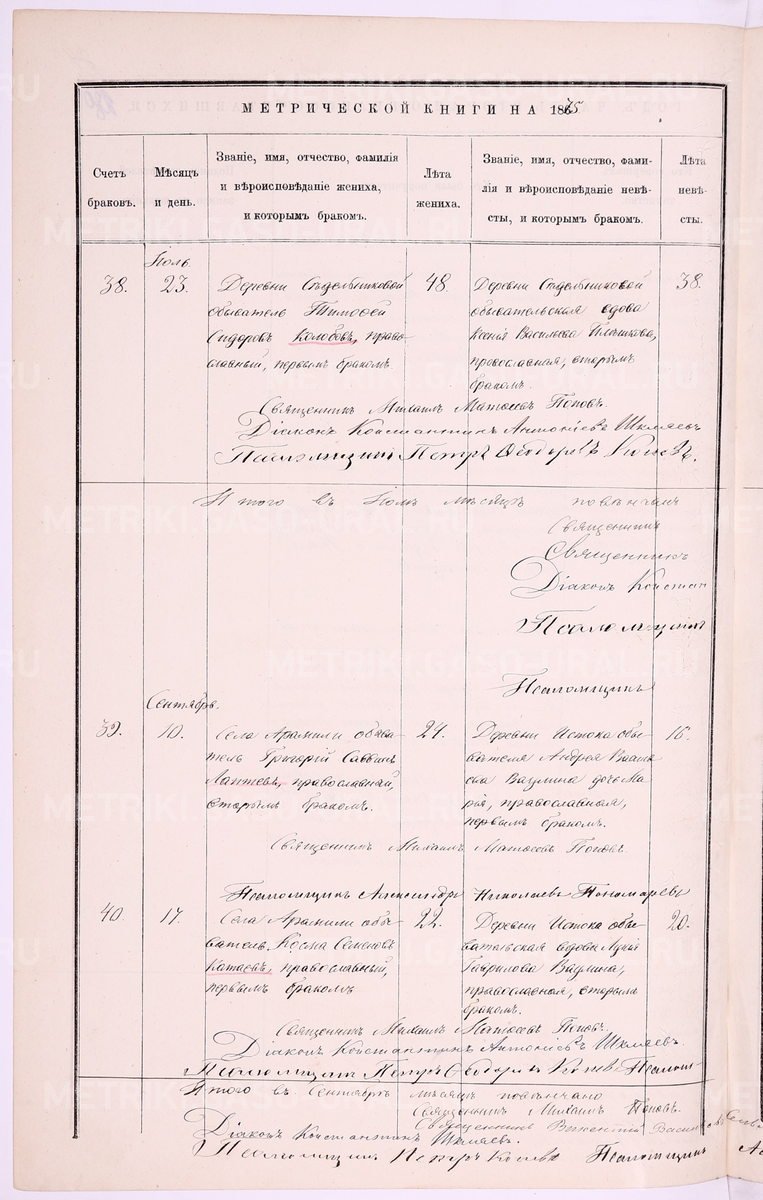 МЕТРИЧЕСКОЙ КНИГИ НА 1875
Счетъ
браковъ.
Мѣсяцъ
и день.
Званіе, имя, отчество, фамилія
и вѣроисповѣданіе жениха,
и которымъ бракомъ.
Лѣта
жениха.
Званіе, имя, отчество, фами-
лія и вѣроисповѣданіе невѣ-
сты, и которымъ бракомъ.
Лѣта
невѣ-
сты.
Іюль.
38.
23.
Деревни Сѣдельниковой
обыватель Тимофей
Сидоровъ Колобовъ, право-
славный, первымъ бракомъ.
48.
Деревни Сѣдельниковой
обывательская вдова
Ксенія Васильева
православная, вторымъ
бракомъ.
38.
Священникъ Михаилъ Матѳеевъ Поповъ.
Діаконъ Константинъ Антоніевъ Шкляевъ
Псаломщикъ Петръ Ѳеодоровъ
Итого въ Іюлѣ мѣсяцѣ повѣнчан
Священникъ
Священникъ
Діаконъ Констан
Псаломщикъ
Псаломщикъ
Сентябрь.
39.
10.
Села Арамили обыва-
тель Григорій Саввинъ
Лаптевъ, православный,
вторымъ бракомъ.
24.
Деревни Истока обы-
вателя Андрея Василь-
ева Ваулина дочь Ма-
рія, православная,
первымъ бракомъ.
16.
Священникъ Михаилъ Матѳеевъ Поповъ.
Псаломщикъ Александръ Николаевъ Пономаревъ
40.
17.
Села Арамили обы-
ватель Косма Семеновъ
Катаевъ, православный,
первымъ бракомъ
22.
Деревни Истока обы-
вательская вдова
Гаврилова Ваулина,
православная, вторымъ
бракомъ.
20.
Священникъ Михаилъ Матѳеевъ Поповъ.
Діаконъ Константинъ Антоніевъ Шкляевъ.
Псаломщикъ Петръ Ѳеодоровъ Псалом
Итого въ Сентябрѣ мѣсяцѣ повѣнчано
Священникъ Михаилъ Поповъ.
Священникъ
Діаконъ Константинъ Шкляевъ.
Псаломщикъ Петръ Псаломщикъ
METRIKI.GASO-URAL.RU